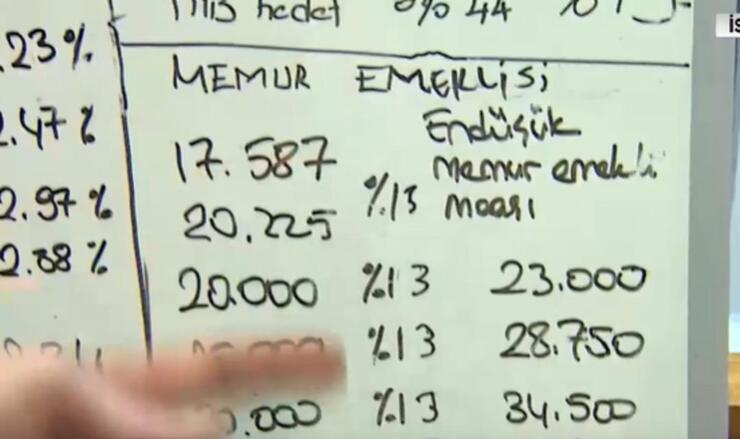 hedef % 44
.23 %
MEMUR EMEKLİSİ
.47 %
17.587 Endüşük
memur emekli
2.97 %
20.225 %13 maaşı
2.88 %
20.000 %13 23.000
%13 28.750
0.000 %13 34.500